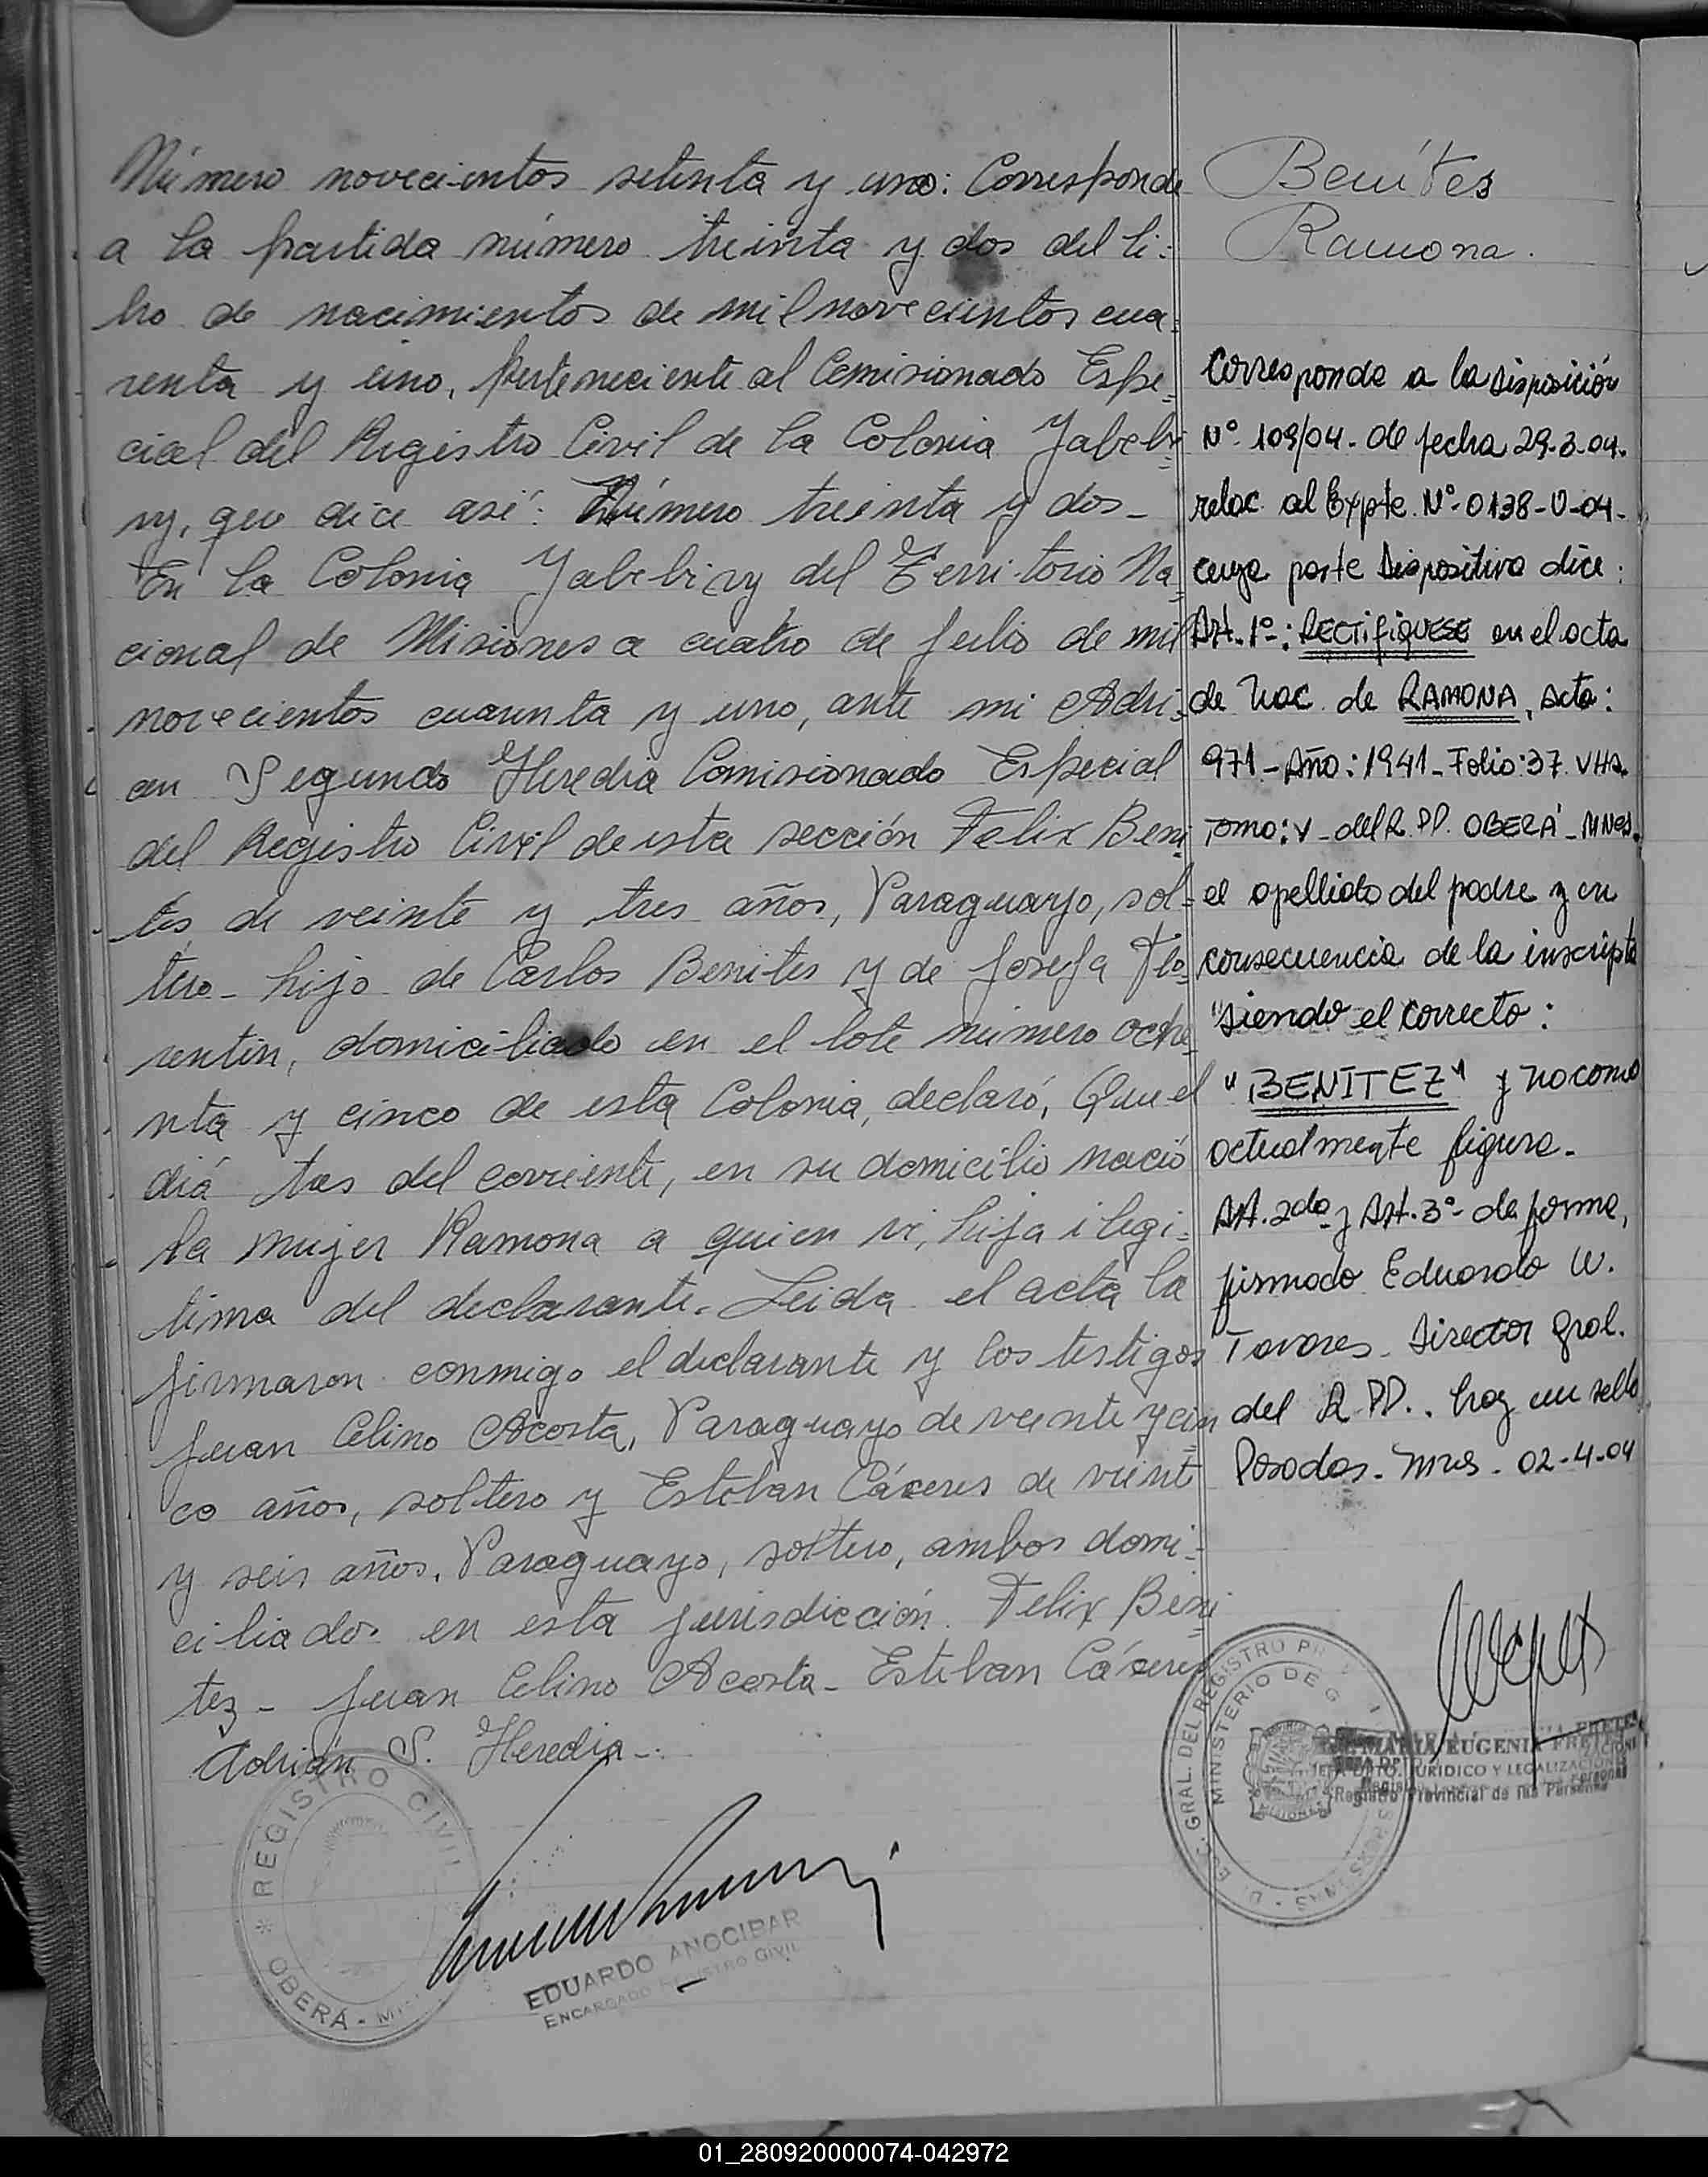 Número novecientos setenta y uno: Corresponde
a la partida número treinta y dos del li=
bro de nacimientos de mil novecientos cua=
renta y uno, perteneciente al Comisionado Espe=
cial del Registro Civil de la Colonia Yabebi=
ry, que dice así: Número treinta y dos_
En la Colonia Yabebiry del Territorio Na=
cional de Misiones a cuatro de Julio de mil
novecientos cuarenta y uno, ante mi Adri=
an Segundo Heredia Comisionado Especial
del Registro Civil de esta sección Felix Beni=
tes de veinte y tres años, Paraguayo, sol=
tero_ hijo de Carlos Benites y de Josefa Flo=
rentin, domiciliado en el lote número oche=
nta y cinco de esta Colonia, declaró, Que el
diá tres del corriente, en su domicilio nació
la mujer Ramona a quien vi, hija ilegi=
tima del declarante. Leida el acta la
firmaron conmigo el declarante y los testigos
Juan Celino Acosta, Paraguayo de veinte y cin=
co años, soltero y Esteban Cáceres de veint
y seis años, Paraguayo, soltero, ambos domi=
ciliados en esta jurisdicción. Felix Beni=
tez_ Juan Celino Acosta_ Esteban Cáceres
Adrián S. Heredia_.
REGISTRO CIVIL
OBERÁ -
EDUARDO ANOCIBAR
ENCARGADO REGISTRO CIVIL
Benítes
Ramona.
Corresponde a la disposición
Nº 109/04. de fecha 29-3-04.
relac. al Expte. Nº 0138-U-04.
cuya parte dispositiva dice:
Art. 1º: RECTIFIQUESE en el acta
de Nac. de RAMONA, Acta:
971_Año: 1941_Folio: 37 vta.
Tomo: V_del R.PP. OBERÁ_Mnes.
el apellido del padre y en
consecuencia de la inscripta
"siendo el correcto:
"BENITEZ" y no como
actualmente figura.
Art. 2do y Art. 3º de forma,
firmado Eduardo W.
Tavares_Director Gral.
del R.PP.. hay un sello
Posadas_Mnes_02-4-04
GRAL. DEL REGISTRO
MINISTERIO DE G
MISIONES
MARIA EUGENIA
JEFA DPTO. JURIDICO Y LEGALIZACIONES
Registro Provincial de las Personas
01_280920000074-042972